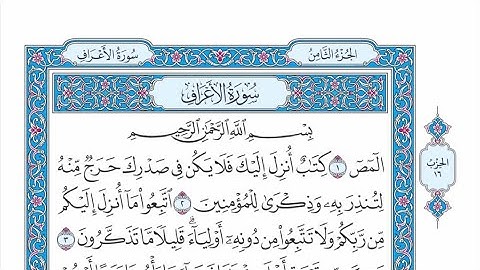 سُورَةُ الأَعۡرَافِ
الجُزۡءُ الثَّامِنُ
سُورَةُ الأَعۡرَافِ
بِسۡمِ ٱللَّهِ ٱلرَّحۡمَٰنِ ٱلرَّحِيمِ
الٓمٓصٓ ١ كِتَٰبٌ أُنزِلَ إِلَيۡكَ فَلَا يَكُن فِي صَدۡرِكَ حَرَجٌ مِّنۡهُ
لِتُنذِرَ بِهِۦ وَذِكۡرَىٰ لِلۡمُؤۡمِنِينَ ٢ ٱتَّبِعُواْ مَآ أُنزِلَ إِلَيۡكُم
مِّن رَّبِّكُمۡ وَلَا تَتَّبِعُواْ مِن دُونِهِۦٓ أَوۡلِيَآءَۗ قَلِيلٗا مَّا تَذَكَّرُونَ ٣
الحِزۡبُ
١٦